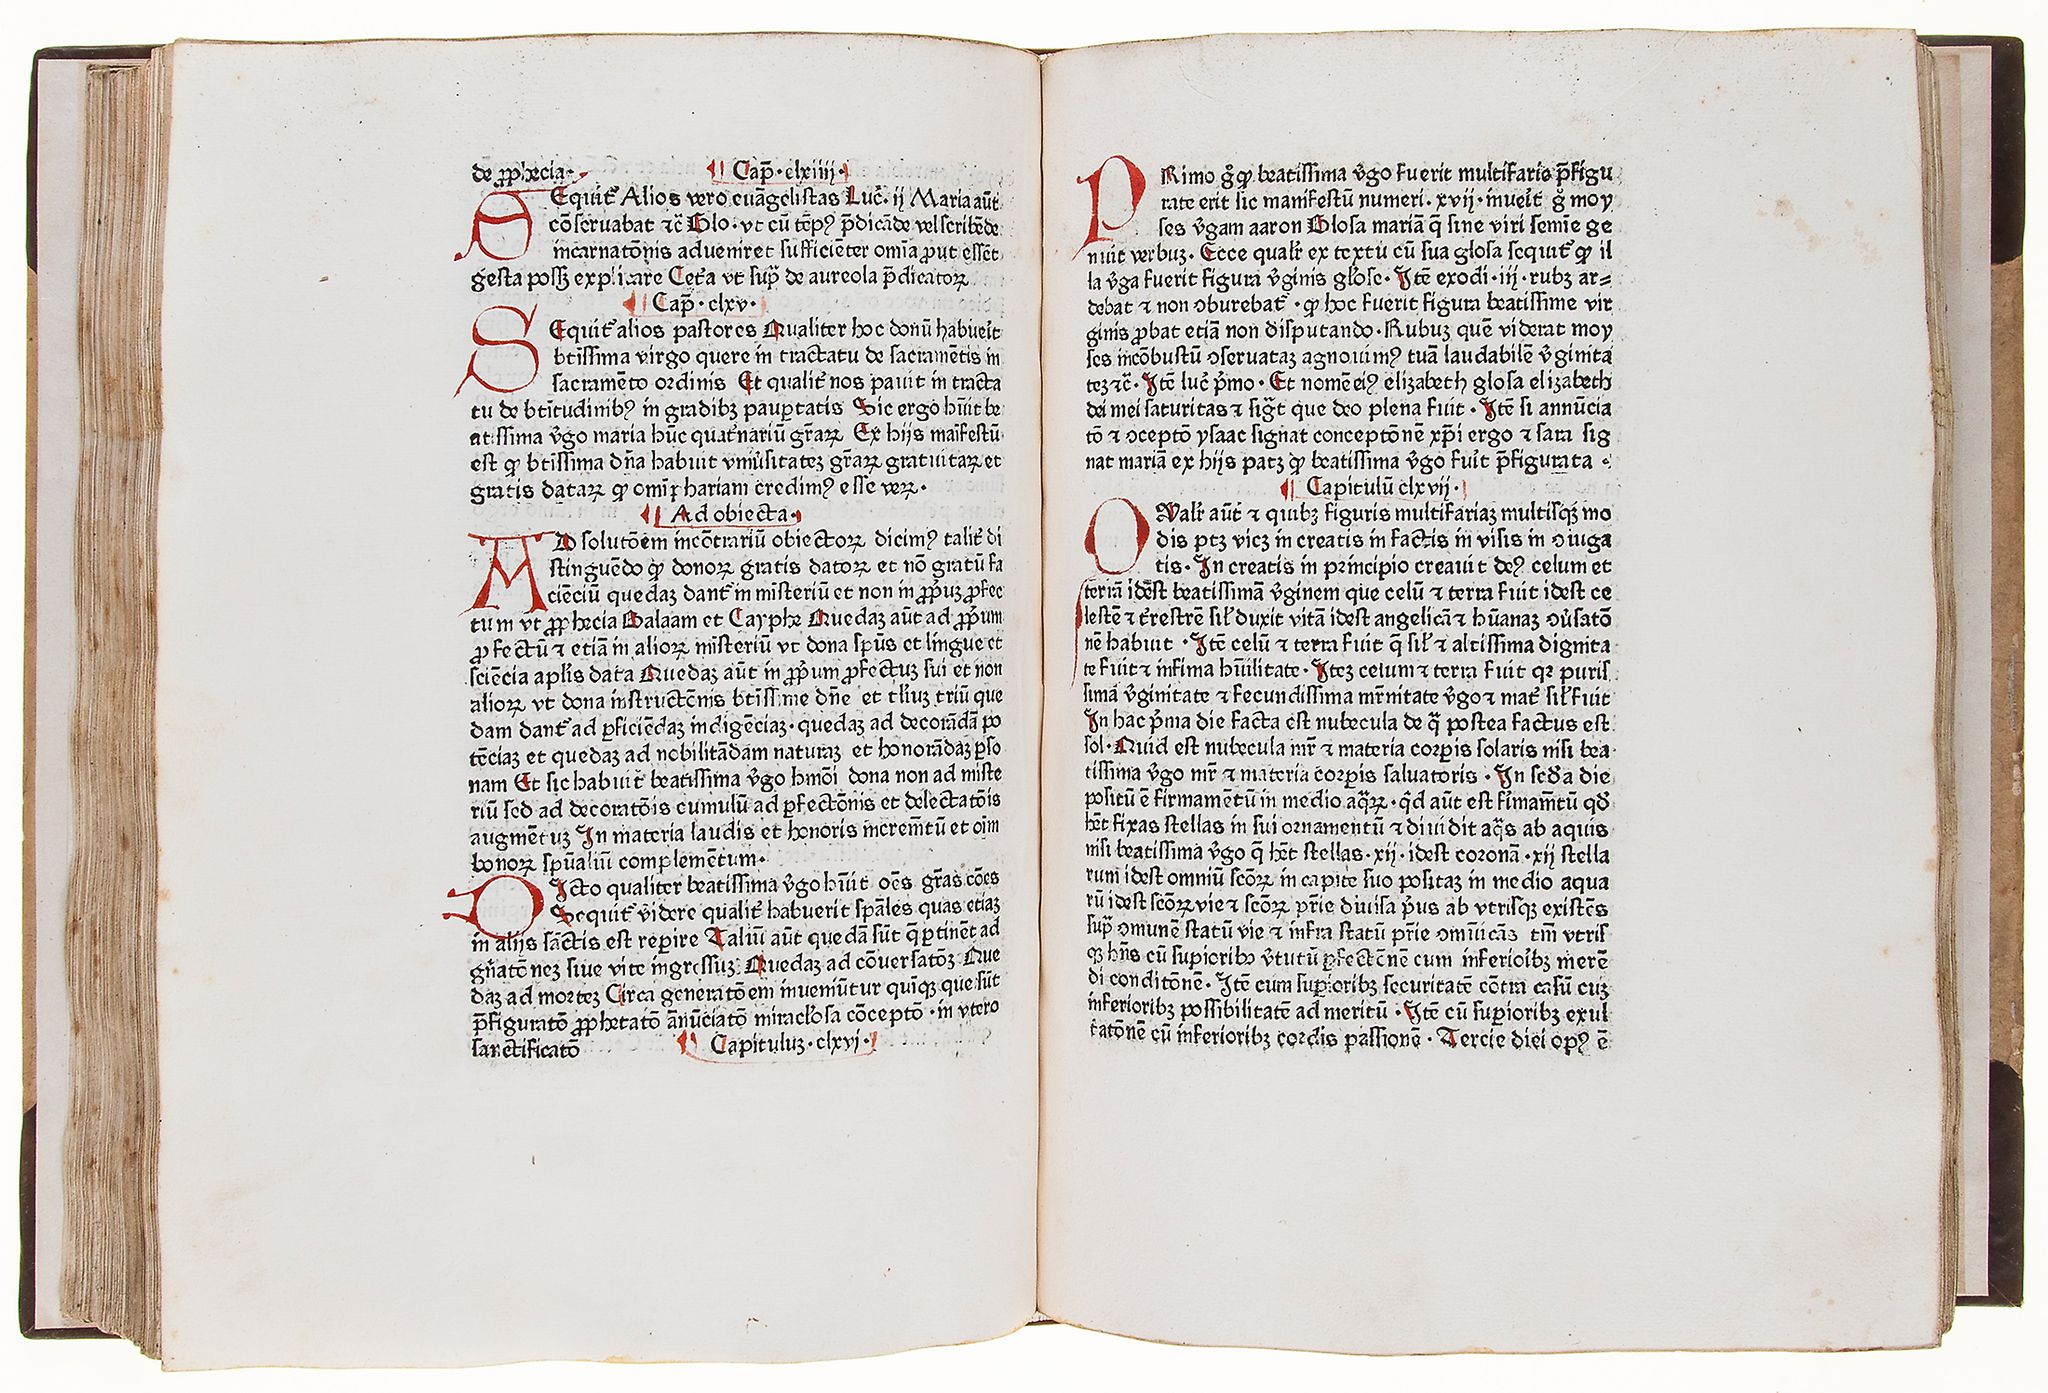 de ꝓphecia· Cap̄·clxiiii·
SEquit᷑ Alios vero euāgelistas Luc̄·ij Maria aūt
cōseruabat ⁊c̄ Glo·vt cū tēpꝰ p̄dicāde vel scribēde
incarnatōnis adueniret sufficiēter omīa ꝓut essēt
gesta possꝫ explicare Cet̄a vt sup̄ de aureola p̄dicatoꝝ
Cap̄·clxv·
SEquit᷑ alios pastores Qualiter hoc donū habueīt
btīssima virgo quere in tractatu de sacramētis in
sacramēto ordinis Et qualit᷑ nos pauit in tracta
tu de btītudinibꝰ in gradibꝫ pauꝑtatis Sic ergo hūit be
atissima v̄go maria hūc quat᷑nariū gr̄aꝝ Ex hijs maīfestū
est ꝙ btīssima dn̄a habuit vniūsitateꝫ gr̄aꝝ gratuitaꝝ et
gratis dataꝝ ꝙ omīphariam credimꝰ esse veꝝ·
Ad obiecta·
AD solutōem incōtrariū obiectoꝝ dicimꝰ talit᷑ di
stinguēdo ꝙ donoꝝ gratis datoꝝ et nō gratū fa
ciēciū quedaꝫ dant᷑ in mīsteriū et non in ꝓp̄uꝫ ꝓfec
tum vt ꝓphecia Balaam et Cayphe Quedaꝫ aūt ad ꝓp̄um
ꝓfectū ⁊ etiā in alioꝝ misteriū vt dona spūs et lingue et
sciēcia aplīs data Quedaꝫ aūt in ꝓp̄um ꝓfectuꝫ sui et non
alioꝝ vt dona instructōnis btīssime dn̄e et tliuꝫ triū que
dam dant᷑ ad ꝑficiēdaꝫ indigēciaꝫ·quedaꝫ ad decorādā po
tēciaꝫ et quedaꝫ ad nobilitādam naturaꝫ et honorādaꝫ ꝑso
nam Et sic habuit beatissima v̄go hm̄oi dona non ad miste
riū sed ad decoratōis cumulū ad ꝑfectōnis et delectatōis
augmētuꝫ In materia laudis et honoris incremt̄ū et oīm
bonoꝝ spūaliū complemētum·
DIcto qualiter beatissima v̄go hūit oēs gr̄as cōes
Sequit᷑ v̄idere qualit᷑ habuerit spāles quas etiaꝫ
in alijs sāctis est reꝑire Taliū aūt quedā sūt q̄ ꝑtinēt ad
gn̄atōneꝫ siue vite ingressuꝫ Quedaꝫ ad cōuersatōꝫ Que
daꝫ ad morteꝫ Circa generatōem inueniūtur quīqꝫ que sūt
p̄figuratō ꝓphetatō ānūciatō miracl̄osa cōceptō·in vtero
sanctificatō Capituluꝫ·clxvi·
PRimo g̊ ꝙ beatissima v̄go fuerit multifarie p̄figu
rate erit sic manifestū numeri·xvij·inueīt g̊ moy
ses v̄gam aaron Glosa mariā q̄ sine viri semīe ge
nuit verbuꝫ· Ecce qualr̄ ex textu cū sua glosa sequit᷑ ꝙ il
la v̄ga fuerit figura v̄ginis gl̄ose· Itē exodi·iij·rubꝫ ar=
debat ⁊ non ꝯburebat᷑·ꝙ hoc fuerit figura beatissime vir
ginis ꝓbat etiā non disputando·Rubuꝫ quē viderat moy
ses incōbustū ꝯseruataꝫ agnouimꝰ tuā laudabilē v̄ginita
teꝫ ⁊c̄· Itē luc̄ p̄mo·Et nomē eiꝰ elizabeth glosa elizabeth
dei mei saturitas ⁊ sigt̄ que deo plena fuit· Itē si annūcia
tō ⁊ ꝯceptō ysaac signat conceptōnē xp̄i ergo ⁊ sara sig
nat mariā ex hijs patꝫ ꝙ beatissima v̄go fuit p̄figurata·
Capitulū clxvij·
QValr̄ aūt ⁊ quibꝫ figuris multifariaꝫ multisqꝫ mo
dis ptꝫ vicꝫ in creatis in factis in visis in ꝯiuga
tis· In creatis in principio creauit deꝰ celum et
terrā idēst beatissimā v̄ginem que celū ⁊ terra fuit idest ce
lestē ⁊ t᷑restrē sil̄ duxit vitā idest angelicā ⁊ hūanaꝫ ꝯūsatō
nē habuit· Itē celū ⁊ terra fuit q̄ sil̄ ⁊ altissima dignita
te fuit ⁊ infima hūilitate· Iteꝫ celum ⁊ terra fuit qꝛ puris
simā v̄ginitate ⁊ fecundissima mr̄nitate v̄go ⁊ mat᷑ sil̄ fuit
In hac p̄ma die facta est nubecula de q̄ postea factus est
sol·Quid est nubecula mr̄ ⁊ materia corꝑis solaris nisi bea
tissima v̄go mr̄ ⁊ materia corꝑis saluatoris· In secd̄a die
positū ē firmamētū in medio aq̄ꝝ·q̄d aūt est fīmamt̄ū qd̄
hēt fixas stellas in sui ornamētū ⁊ diuidit aq̄s ab aquis
nisi beatissima v̄go q̄ hēt stellas·xij·idest coronā·xij stella
rum idest omniū scōꝝ in capite suo positaꝫ in medio aqua
rū idest scōꝝ vie ⁊ scōꝝ pr̄ie diuisa p̄us ab vtrisqꝫ existēs
sup̄ ꝯmunē statū vie ⁊ infra statū pr̄ie ꝯmūicās tm̄ vtris
qꝫ hn̄s cū suꝑioribꝫ v̄tutū ꝑfectōnē cum inferioībꝫ merē
di conditōnē· Itē cum suꝑioribꝫ securitatē cōtra casū cuꝫ
inferioribꝫ possibilitatē ad meritū· Itē cū suꝑioribꝫ exul
tatōnē cū inferioribꝫ cordis passionē· Tercie diei opꝰ ē